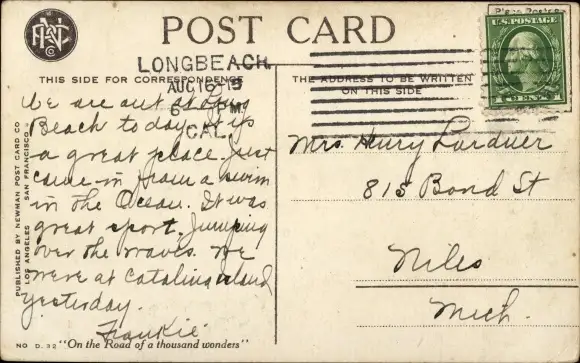 POST CARD
Place Postage
U.S. POSTAGE
1 CENT 1
LONGBEACH
AUG 16 15
6 PM
CAL.
THIS SIDE FOR CORRESPONDENCE
THE ADDRESS TO BE WRITTEN
ON THIS SIDE
We are out at Long
Beach today. It is
a great place. Just
came in from a swim
in the Ocean. It was
great sport. Jumping
over the waves. We
were at Catalina island
yesterday.
Frankie
Mrs. Henry Lardner
815 Bond St
Niles
Mich.
PUBLISHED BY NEWMAN POST CARD CO
LOS ANGELES SAN FRANCISCO
NO D. 32 "On the Road of a thousand wonders"